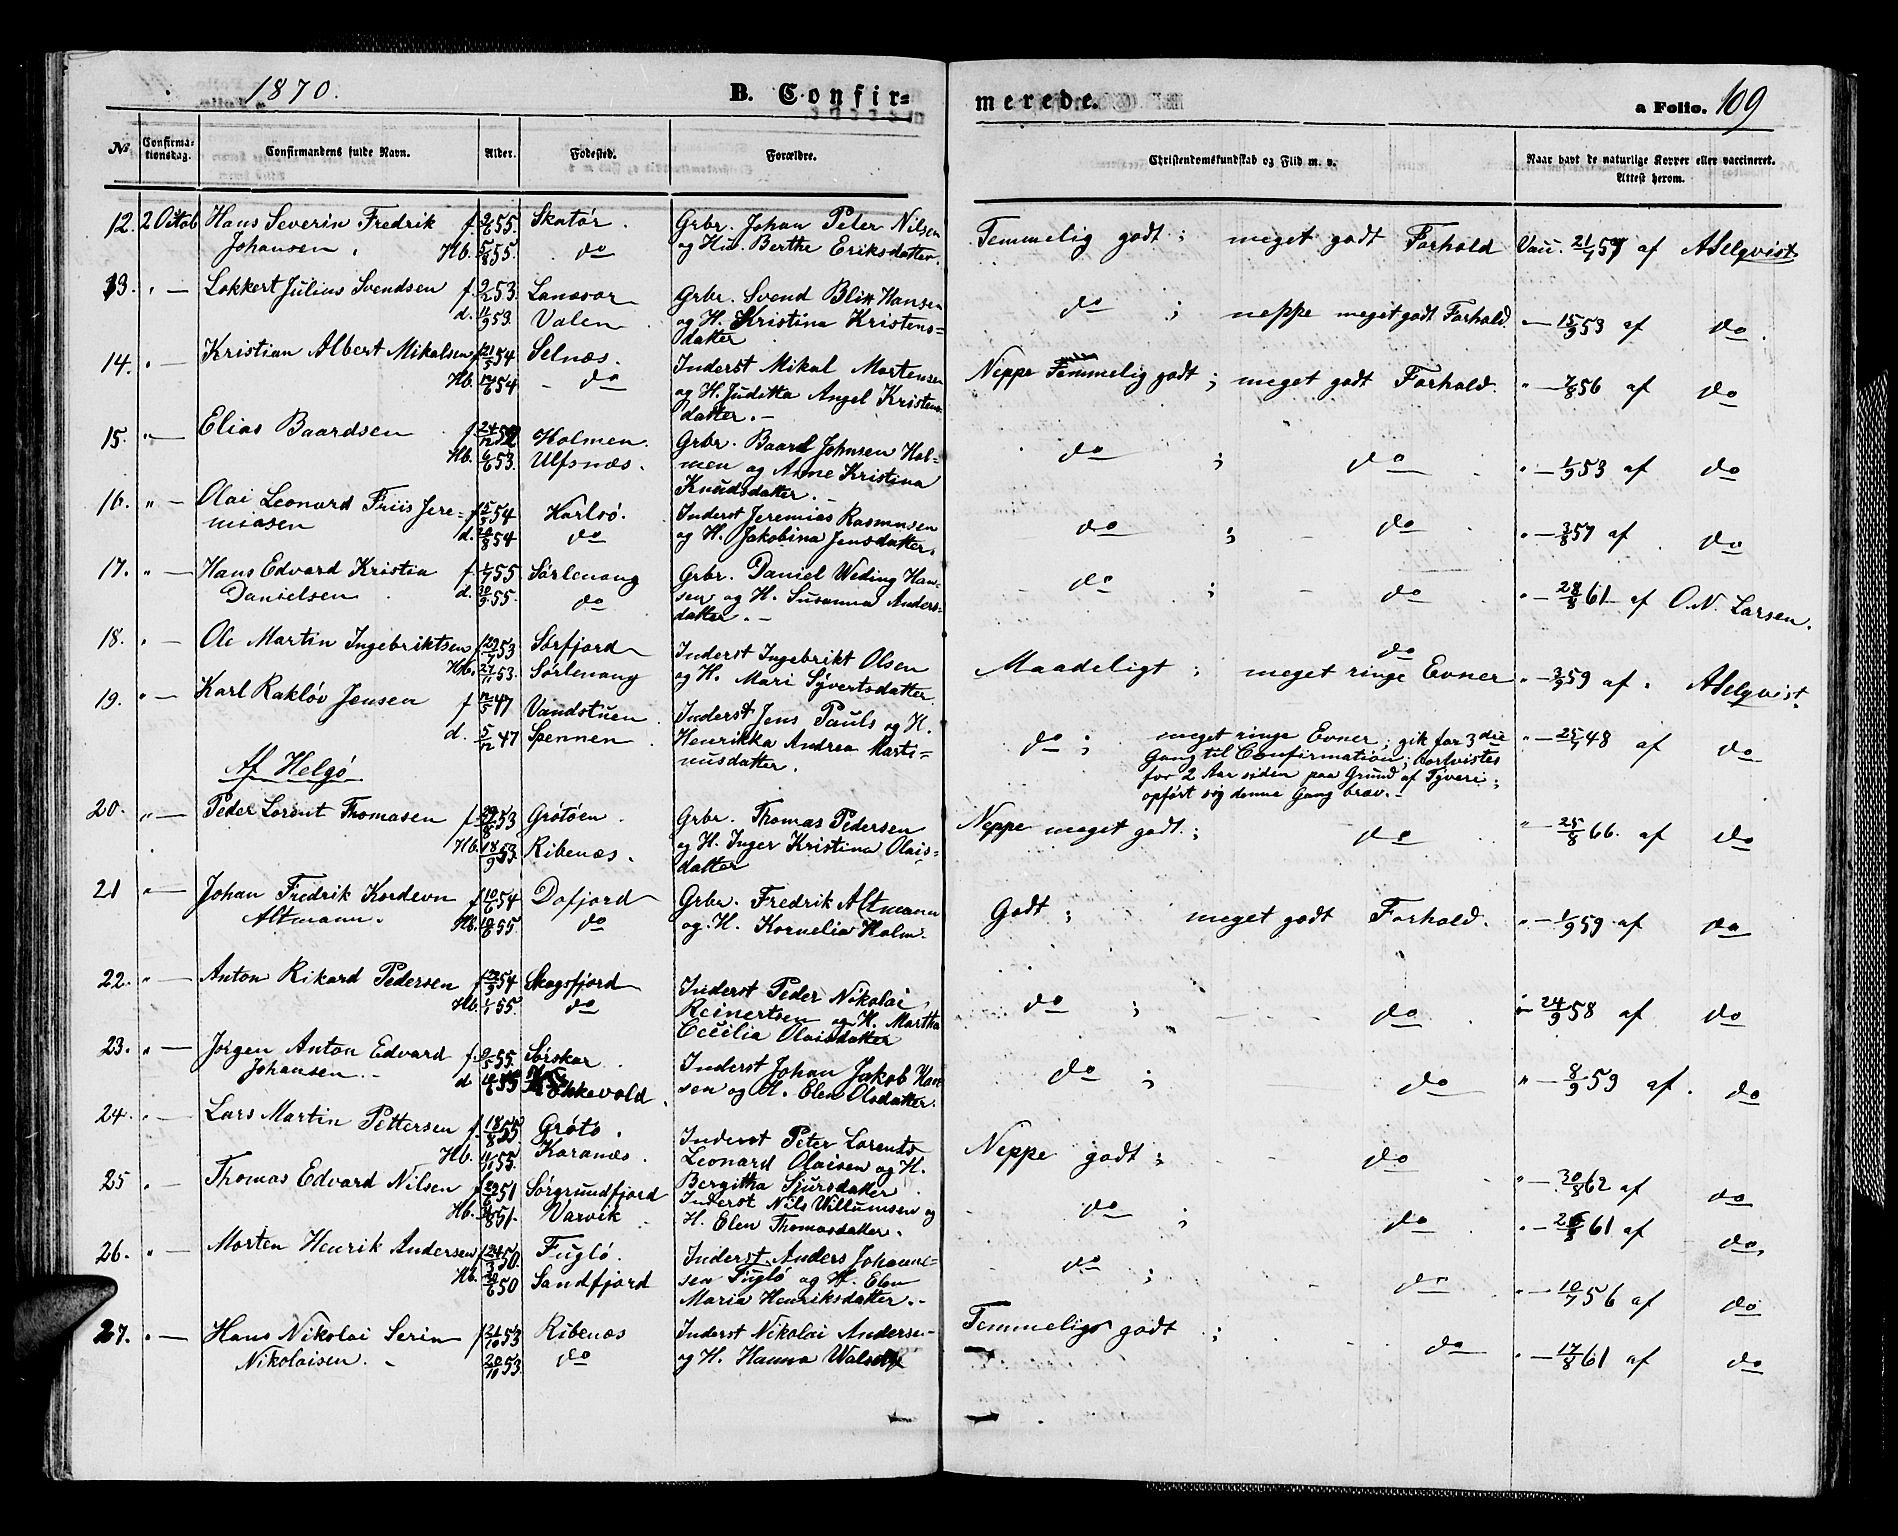 1870.
B. Confir=
merede.
a Folio. 109
No. Confirma-tionsdag. Confirmandens fulde Navn. Alder. Fødested. Forældre. Christendomskundskab og Flid m. v. Naar havt de naturlige Kopper eller vaccineret. Attest herom.
12. 2 Octob Hans Severin Fredrik f. 2/6 55. Skatør. Grbr. Johan Peter Nilsen Temmelig godt; meget godt Forhold Vacc. 21/7 57 af A Selqvist
Johansen. Hb. 5/8 55. do og Hu. Berthe Eriksdatter.
13. " — Lokkert Julius Svendsen f. 53. Lanesør Grbr. Svend Blix Hansen do ; neppe meget godt Forhold. " — 15/9 53 af do.
d. 53. Valen og H. Kristina Kristens-
datter
14. " — Kristian Albert Mikalsen f. 21/5 54 Selnæs. Inderst Mikal Mortensen Neppe Temmelig godt; meget godt Forhold. " — 7/8 56 af do
Hb. 54 - do og H. Juditta Angel Kristens-
datter. -
15. " — Elias Baardsen f. 24/12 52 Holmen. Grbr. Baard Johnsen Hol- do ; do " — 1/9 53 af do
Hb. 6/6 53. Ulfsnæs. men og Anne Kristina
Knudsdatter. -
16. " — Olai Leonard Friis Jere- f. 15/5 54 Karlsø. Inderst Jeremias Rasmusen do ; - do " — 3/8 57 af do
miasen d. 54 do og H. Jakobina Jensdatter.
17. " — Hans Edvard Kristia f. 1/7 55 Sørlenang Grbr. Daniel Weding Han- do ; - do " — 28/8 61 af O. N. Larsen.
Danielsen d. 30/9 55. do sen og H. Susanna Anders-
datter. -
18. " — Ole Martin Ingebriktsen f. 53 Sørfjord Inderst Ingebrikt Olsen Maadeligt; do meget ringe Evner " — 3/9 59 af A Selqvist.
Hb. 27/11 53. Sørlenang og H. Mari Syvertsdatter
19. " — Karl Rakløv Jensen f. 12/5 47 Vandstuen Inderst Jens Pauls og H. do ; meget ringe Evner; gik for 3die " — 25/7 48 af do
d. 5/12 47 Spennen Henrikka Andrea Marti- Gang til Confirmation; bortvistes
nusdatter. for 2 Aar siden paa Grund af Tyveri;
opført sig denne Gang brav. -
Af Helgø
20. " — Peder Lorent Thomasen f. 29/8 53 Grøtøen. Grbr. Thomas Pedersen Neppe meget godt; do " — 25/8 66. af do
Hb. 18/9 53. Ribenæs. og H. Inger Kristina Olais-
datter
21 " — Johan Fredrik Kordevn f. 10/6 54 Dafjord Grbr. Fredrik Altmann Godt; meget godt Forhold. " — 1/9 59. af do
Altmann. Hb. 55 do og H. Kornelia Holm.
22. " — Anton Rikard Pedersen f. 54 Skogsfjord Inderst Peder Nikolai do ; - - do " — 24/9 58 af do
Hb. 1/1 55. do Reinertsen og H. Martha
Cecilia Olaisdatter
23. " — Jørgen Anton Edvard f. 55. Sørskar Inderst Johan Jakob Han- do ; do " — 8/9 59 af. do
Johansen. - d 55 Kokkevold. sen og H. Elen Olsdatter.
24. " — Lars Martin Pettersen f. 18/8 55. Grøtø. Inderst Peter Lorents Neppe godt; - - do " — 20/8 62 af do
Hb. 55. Karanæs. Leonard Olaisen og H.
Bergitha Sjursdatter
25 " — Thomas Edvard Nilsen f. 51 Sørgrundfjord Inderst Nils Villumsen og - do ; do " — 61 af do,
Hb. 51. Varvik H. Elen Thomasdatter.
26. " — Morten Henrik Andersen f. 50. Fuglø. Inderst Anders Johanne- - do ; - do " — 10/7 56 af do
Hb. 50 Sandfjord sen Fuglø og H. Elen
Maria Henriksdatter. -
27. " — Hans Nikolai Serin f. 53 Ribenæs Inderst Nikolai Andersen- Temmelig godt ; do " — 17/8 61 af do
Nikolaisen. - 20/10 53. do og H. Hanna